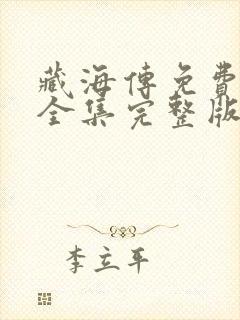 藏海傳免費
全集完整版
李立平